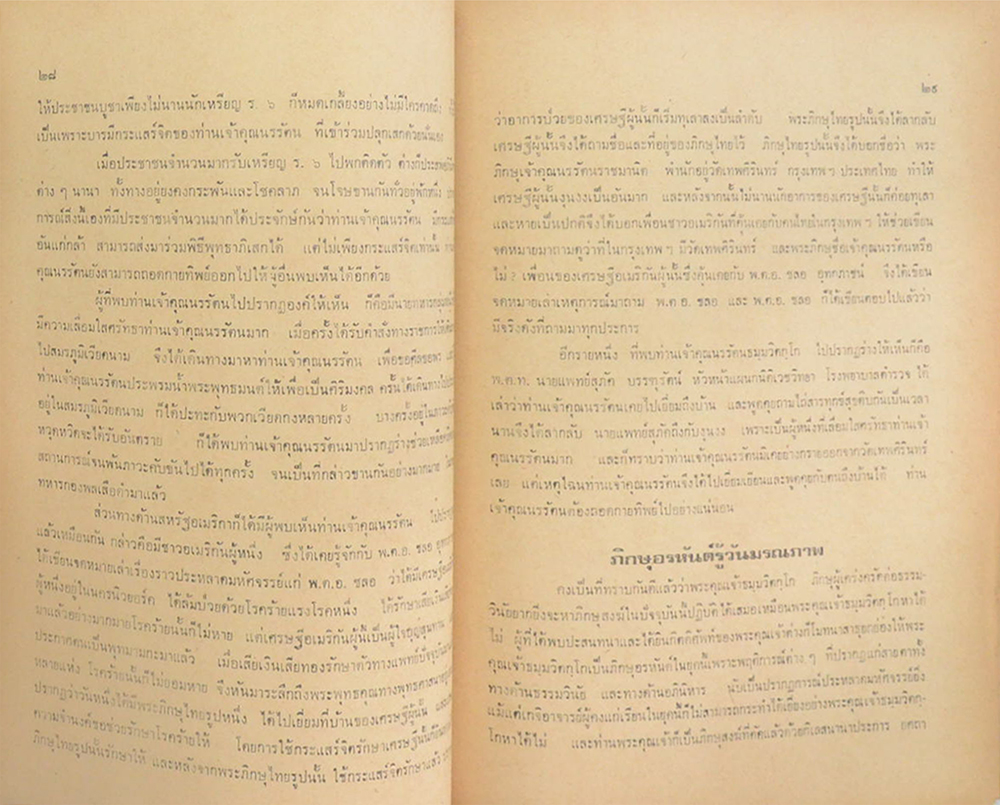 ๒๘
ให้ประชาชนบูชาเพียงไม่นานนักเหรียญ ร. ๖ ก็หมดเกลี้ยงอย่างไม่มีใครคาดถึง
เป็นเพราะบารมีกระแสร์จิตของท่านเจ้าคุณนรรัตน ที่เข้าร่วมปลุกเสกด้วยนั่นเอง
เมื่อประชาชนจำนวนมากรับเหรียญ ร. ๖ ไปพกติดตัว ต่างก็ประสพ
ต่าง ๆ นานา ทั้งทางอยู่ยงคงกระพันและโชคลาภ จนโจษขานกันทั่วอยู่พักหนึ่ง
การณ์สิ่งนี้เองที่มีประชาชนจำนวนมากได้ประจักษ์กันว่าท่านเจ้าคุณนรรัตน
อันแก่กล้า สามารถส่งมาร่วมพิธีพุทธาภิเสกได้ แต่ไม่เพียงกระแสร์จิตเท่านั้น
คุณนรรัตนยังสามารถถอดกายทิพย์ออกไปให้ผู้อื่นพบเห็นได้อีกด้วย
ผู้ที่พบท่านเจ้าคุณนรรัตนไปปรากฏองค์ให้เห็น ก็คือมีนายทหาร
มีความเลื่อมใสศรัทธาท่านเจ้าคุณนรรัตนมาก เมื่อครั้งได้รับคำสั่งทางราชการให้
ไปสมรภูมิเวียดนาม จึงได้เดินทางมาหาท่านเจ้าคุณนรรัตน เพื่อขอศีลขอพร
ท่านเจ้าคุณนรรัตนประพรมน้ำพระพุทธมนต์ให้เพื่อเป็นศิริมงคล ครั้นได้เดินทาง
อยู่ในสมรภูมิเวียดนาม ก็ได้ปะทะกับพวกเวียดกงหลายครั้ง บางครั้งอยู่ใน
หวุดหวิดจะได้รับอันตราย ก็ได้พบท่านเจ้าคุณนรรัตนมาปรากฏร่างช่วยเหลือ
สถานการณ์จนพ้นภาวะคับขันไปได้ทุกครั้ง จนเป็นที่กล่าวขานกันอย่างมากมาย
ทหารกองพลเสือดำมาแล้ว
ส่วนทางด้านสหรัฐอเมริกาก็ได้มีผู้พบเห็นท่านเจ้าคุณนรรัตน
แล้วเหมือนกัน กล่าวคือมีชาวอเมริกันผู้หนึ่ง ซึ่งได้เคยรู้จักกับ พ.ต.อ. ชลอ
ได้เขียนจดหมายเล่าเรื่องราวประหลาดมหัศจรรย์แก่ พ.ต.อ. ชลอ ว่าได้มีเศรษฐี
ผู้หนึ่งอยู่ในนครนิวยอร์ค ได้ล้มป่วยด้วยโรคร้ายแรงโรคหนึ่ง ได้รักษา
มาแล้วอย่างมากมายโรคร้ายนั้นก็ไม่หาย แต่เศรษฐีอเมริกันผู้นี้เป็นผู้ใจบุญสุนทาน
ประกาศตนเป็นพุทธมามกะมาแล้ว เมื่อเสียเงินเสียทองรักษาตัวทางแพทย์ปัจจุบัน
หลายแห่ง โรคร้ายนั้นก็ไม่ยอมหาย จึงหันมาระลึกถึงพระพุทธคุณทางพุทธศาสนา
ปรากฏว่าวันหนึ่งได้มีพระภิกษุไทยรูปหนึ่ง ได้ไปเยี่ยมที่บ้านของเศรษฐีผู้นั้น
ความจำนงค์ขอช่วยรักษาโรคร้ายให้ โดยการใช้กระแสร์จิตรักษาเศรษฐีนั้นก็
ภิกษุไทยรูปนั้นรักษาให้ และหลังจากพระภิกษุไทยรูปนั้น ใช้กระแสร์จิตรักษาแล้ว
๒๙
ว่าอาการป่วยของเศรษฐีผู้นั้นก็เริ่มทุเลาลงเป็นลำดับ พระภิกษุไทยรูปนั้นจึงได้ลากลับ
เศรษฐีผู้นั้นจึงได้ถามชื่อและที่อยู่ของภิกษุไทยไว้ ภิกษุไทยรูปนั้นจึงได้บอกชื่อว่า พระ
ภิกษุเจ้าคุณนรรัตนราชมานิต พำนักอยู่วัดเทพศิรินทร์ กรุงเทพฯ ประเทศไทย ทำให้
เศรษฐีผู้นั้นงุนงงเป็นอันมาก และหลังจากนั้นไม่นานนักอาการของเศรษฐีนั้นก็ค่อยทุเลา
และหายเป็นปกติจึงได้บอกเพื่อนชาวอเมริกันที่คุ้นเคยกับคนไทยในกรุงเทพ ฯ ให้ช่วยเขียน
จดหมายมาถามดูว่าที่ในกรุงเทพ ฯ มีวัดเทพศิรินทร์ และพระภิกษุชื่อเจ้าคุณนรรัตนหรือ
ไม่ ? เพื่อนของเศรษฐีอเมริกันผู้นั้นซึ่งคุ้นเคยกับ พ.ต.อ. ชลอ อุทกภาชน์ จึงได้เขียน
จดหมายเล่าเหตุการณ์มาถาม พ.ต.อ. ชลอ และ พ.ต.อ. ชลอ ก็ได้เขียนตอบไปแล้วว่า
มีจริงดังที่ถามมาทุกประการ
อีกรายหนึ่ง ที่พบท่านเจ้าคุณนรรัตนธมฺมวิตกฺโก ไปปรากฏร่างให้เห็นก็คือ
พ.ต.ท. นายแพทย์สุภัค บรรฑุรัตน์ หัวหน้าแผนกนิติเวชวิทยา โรงพยาบาลตำรวจ ได้
เล่าว่าท่านเจ้าคุณนรรัตนเคยไปเยี่ยมถึงบ้าน และพูดคุยถามไถ่สารทุกข์สุขดิบกันเป็นเวลา
นานจึงได้ลากลับ นายแพทย์สุภัคถึงกับงุนงง เพราะเป็นผู้หนึ่งที่เลื่อมใสศรัทธาท่านเจ้า
คุณนรรัตนมาก และก็ทราบว่าท่านเจ้าคุณนรรัตนมิเคยย่างกรายออกจากวัดเทพศิรินทร์
เลย แต่เหตุไฉนท่านเจ้าคุณนรรัตนจึงได้ไปเยี่ยมเยียนและพูดคุยกับตนถึงบ้านได้ ท่าน
เจ้าคุณนรรัตนต้องถอดกายทิพย์ไปอย่างแน่นอน
ภิกษุอรหันต์รู้วันมรณภาพ
คงเป็นที่ทราบกันดีแล้วว่าพระคุณเจ้าธมฺมวิตกฺโก ภิกษุผู้เคร่งครัดต่อธรรม-
วินัยยากยิ่งจะหาภิกษุสงฆ์ในปัจจุบันนี้ปฏิบัติได้เสมอเหมือนพระคุณเจ้าธมฺมวิตกฺโกหาได้
ไม่ ผู้ที่ได้พบปะสนทนาและได้ยินกิตติศัพท์ของพระคุณเจ้าต่างก็โมทนาสาธุยกย่องให้พระ
คุณเจ้าธมฺมวิตกฺโกเป็นภิกษุอรหันต์ในยุคนี้เพราะพฤติการณ์ต่าง ๆ ที่ปรากฏแก่สายตาทั้ง
ทางด้านธรรมวินัย และทางด้านอภินิหาร นับเป็นปรากฏการณ์ประหลาดมหัศจรรย์ยิ่ง
แม้แต่เกจิอาจารย์ผู้คงแก่เรียนในยุคนี้ก็ไม่สามารถกระทำได้เยี่ยงอย่างพระคุณเจ้าธมฺมวิตกฺ-
โกหาได้ไม่ และท่านพระคุณเจ้าก็เป็นภิกษุสงฆ์ที่ตัดแล้วด้วยกิเลสนานาประการ